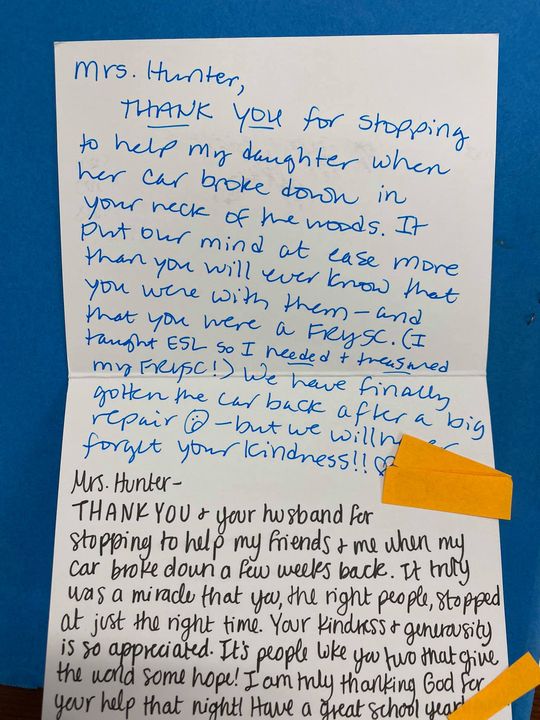 Mrs. Hunter,
THANK YOU for stopping
to help my daughter when
her car broke down in
your neck of the woods. It
put our mind at ease more
than you will ever know that
you were with them - and
that you were a FRYSC. (I
taught ESL so I needed + treasured
my FRYSC!) We have finally
gotten the car back after a big
repair ☹ - but we will
forget your kindness!! ♡
Mrs. Hunter-
THANK YOU & your husband for
stopping to help my friends & me when my
car broke down a few weeks back. It truly
was a miracle that you, the right people, stopped
at just the right time. Your kindness & generousity
is so appreciated. It's people like you two that give
the world some hope! I am truly thanking God for
your help that night! Have a great school year!